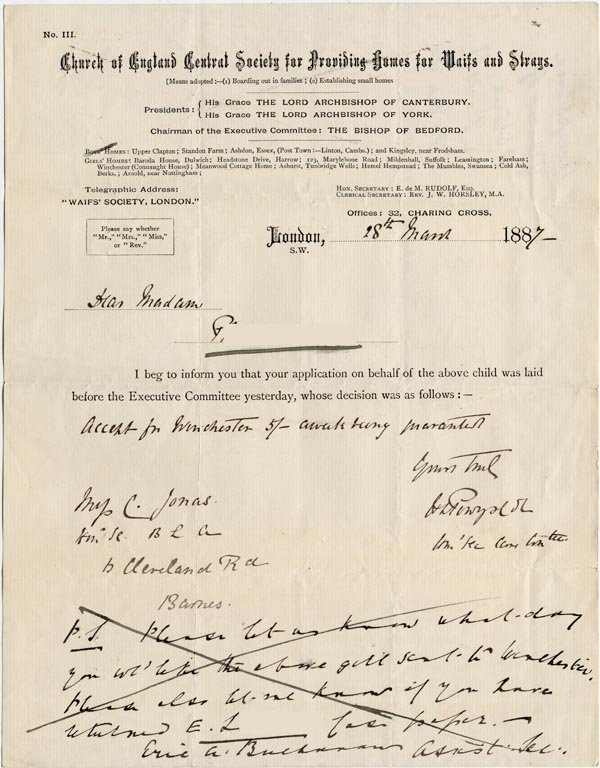 No. III.
Church of England Central Society for Providing Homes for Waifs and Strays.
[Means adopted:—(1) Boarding out in families; (2) Establishing small homes
Presidents: { His Grace THE LORD ARCHBISHOP OF CANTERBURY.
His Grace THE LORD ARCHBISHOP OF YORK.
Chairman of the Executive Committee: THE BISHOP OF BEDFORD.
Boys' Homes: Upper Clapton; Standon Farm; Ashdon, Essex, (Post Town:—Linton, Cambs.); and Kingsley, near Frodsham.
Girls' Homes: Baroda House, Dulwich; Headstone Drive, Harrow; 123, Marylebone Road; Mildenhall, Suffolk; Leamington; Fareham;
Winchester (Connaught House); Meanwood Cottage Home; Ashurst, Tunbridge Wells; Hemel Hempstead; The Mumbles, Swansea; Cold Ash,
Berks.; Arnold, near Nottingham;
Telegraphic Address:
"WAIFS' SOCIETY, LONDON."
Hon. Secretary: E. de M. RUDOLF, Esq.
Clerical Secretary: Rev. J. W. HORSLEY, M.A.
Offices: 32, CHARING CROSS,
Please say whether
"Mr.," "Mrs.," "Miss,"
or "Rev."
London, 28th March 1887—
S.W.
Dear Madam
F.
I beg to inform you that your application on behalf of the above child was laid
before the Executive Committee yesterday, whose decision was as follows:—
Accept for Winchester 5/- a week being guaranteed
Yours truly
Miss C. Jonas.
Hon. Se.
Cleveland Rd
Barnes.
P.S Please let us know what day
you wd like the above girl sent to Winchester.
Please also let me know if you have
returned E. L case paper.—
Eric A. Buchanan Assist. Sec.